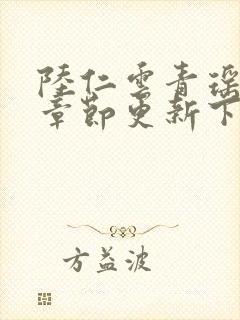 陸仁雲青瑶
章節更新下
方益波